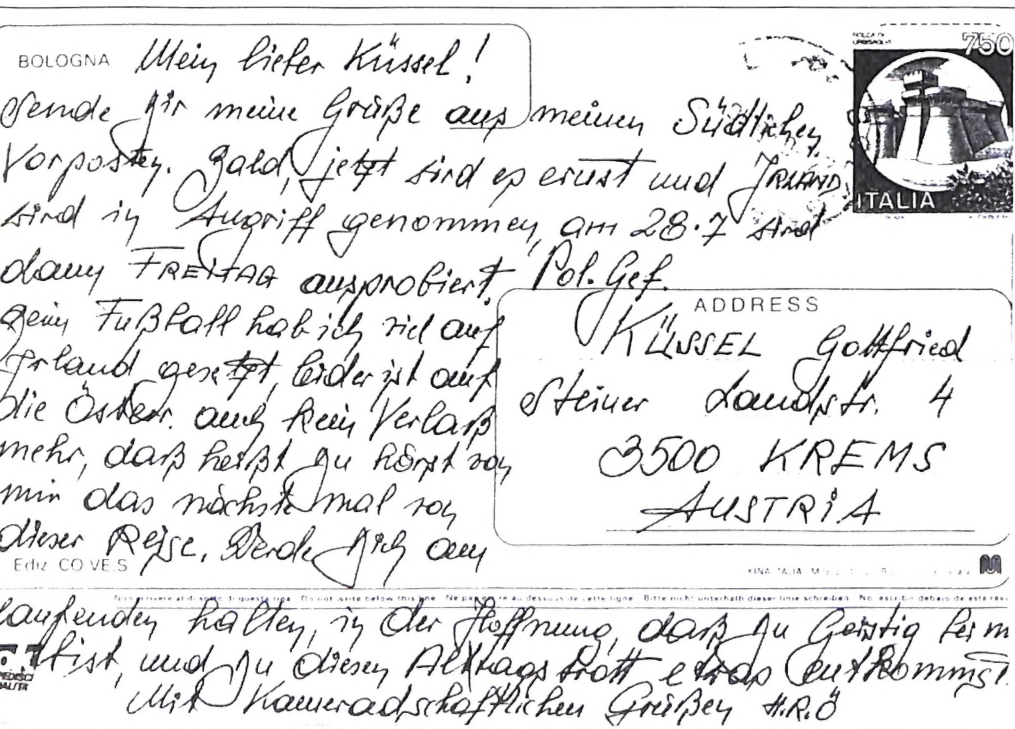 BOLOGNA
Mein lieber Küssel!
Sende Dir meine Grüße aus meinen Südlichen
Vorposten. Bald, jetzt sind es ernst und IRLAND
sind in Angriff genommen, am 28.7 sind
dann FREITAG ausprobiert.
Beim Fußball hab ich viel auf
Irland gesetzt, leider ist auf
die Österr. auch kein Verlaß
mehr, daß heißt Du hörst von
mir das nächste mal von
dieser Reise. Werde Dich am
laufenden halten, in der Hoffnung, daß Du Geistig
bist, und Du diesen Alltagstrott etwas entkommst.
Mit Kameradschaftlichen Grüßen H.R.Ö
750
ITALIA
Pol. Gef.
ADDRESS
KÜSSEL Gottfried
Steiner Landstr. 4
3500 KREMS
AUSTRIA
Ediz. CO.VE.S
Non scrivere al disotto di questa riga Do not write below this line Ne pas écrire au dessous de cette ligne Bitte nicht unterhalb dieser linie schreiben No escribir debajo de esta